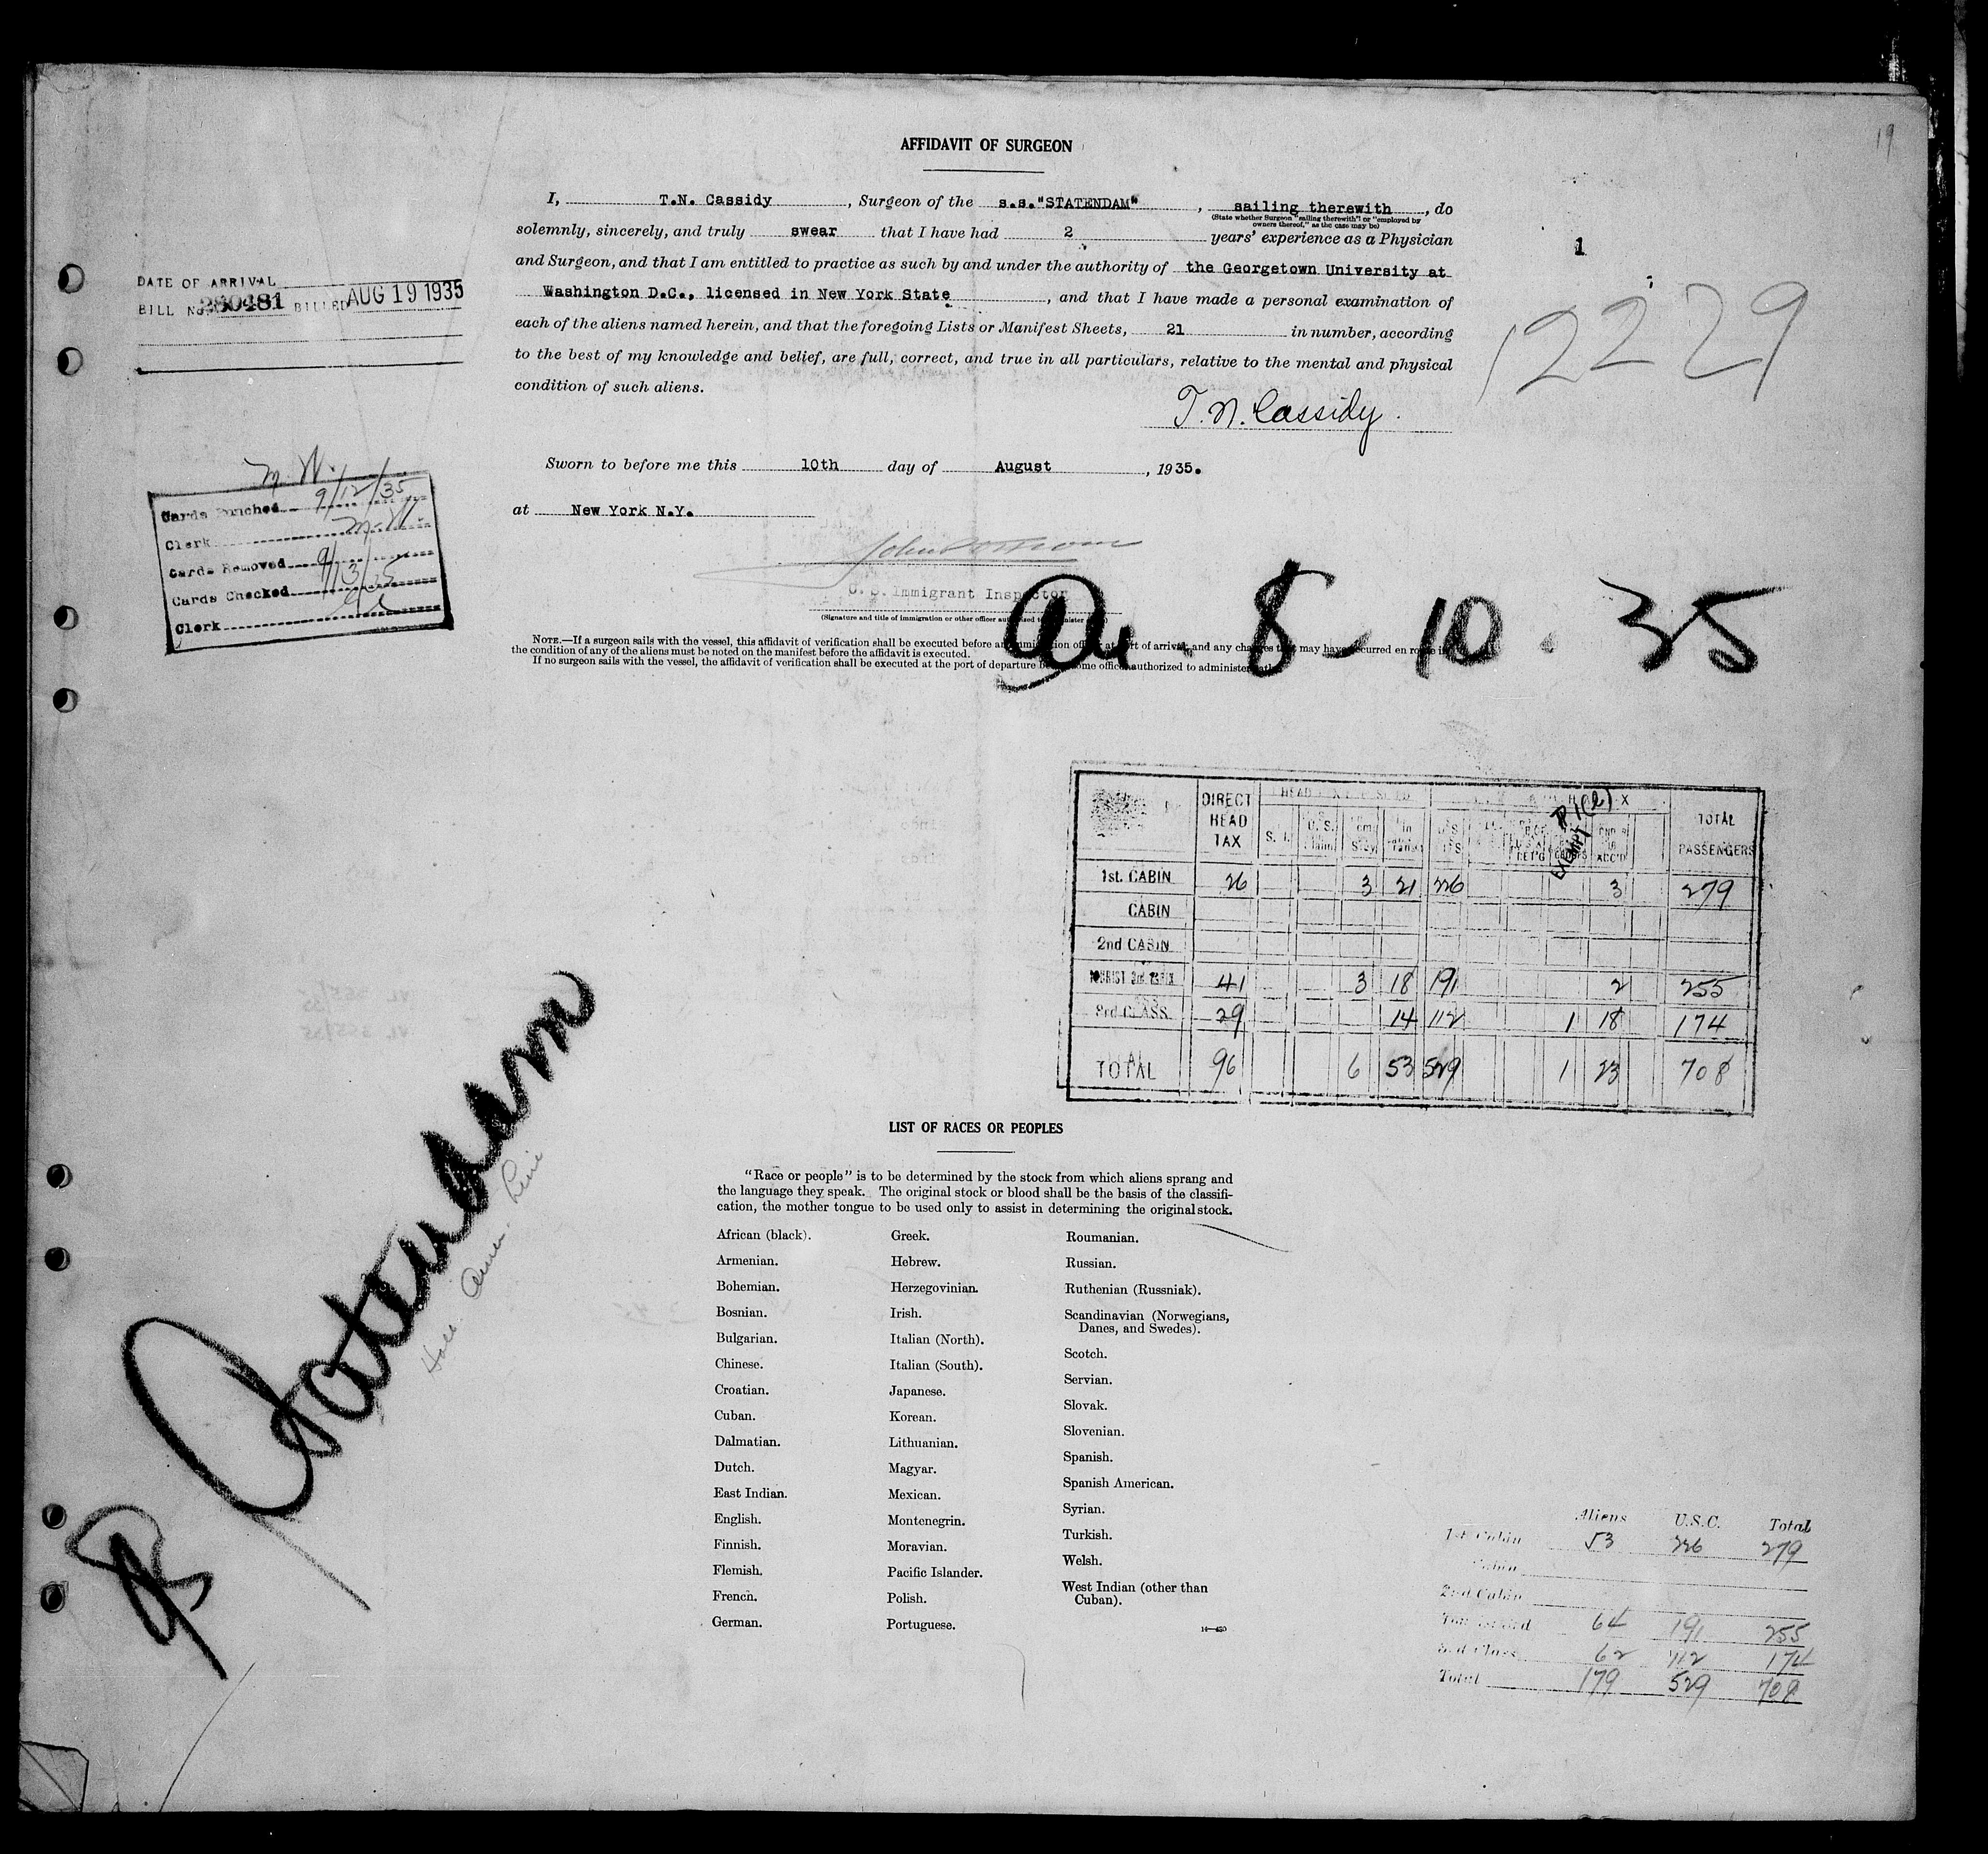 19
AFFIDAVIT OF SURGEON
I, T.N. Cassidy, Surgeon of the s.s."STATENDAM", sailing therewith, do
(State whether Surgeon "sailing therewith" or "employed by
owners thereof," as the case may be)
solemnly, sincerely, and truly swear that I have had 2 years' experience as a Physician
and Surgeon, and that I am entitled to practice as such by and under the authority of the Georgetown University at
Washington D.C., licensed in New York State, and that I have made a personal examination of
each of the aliens named herein, and that the foregoing Lists or Manifest Sheets, 21 in number, according
to the best of my knowledge and belief, are full, correct, and true in all particulars, relative to the mental and physical
condition of such aliens.
T. N. Cassidy.
Sworn to before me this 10th day of August, 1935.
at New York N.Y.
Immigrant Inspector
(Signature and title of immigration or other officer authorized to administer
NOTE.—If a surgeon sails with the vessel, this affidavit of verification shall be executed before an immigration officer at port of arrival, and any changes that may have occurred en route in
the condition of any of the aliens must be noted on the manifest before the affidavit is executed.
If no surgeon sails with the vessel, the affidavit of verification shall be executed at the port of departure before some officer authorized to administer
1
12229
8-10.35
DATE OF ARRIVAL
BILL No. 260481 BILLED AUG 19 1935
M. W.
Cards Punched 9/12/35
Clerk M.W.
Cards Removed
Cards Checked 9/13/35
Clerk
DIRECT HEAD TAX
TOTAL PASSENGERS
1st. CABIN 26 3 21 226 3 279
CABIN
2nd CABIN
TOURIST 3rd CABIN 41 3 18 191 2 255
3rd CLASS 29 14 112 1 18 174
TOTAL 96 6 53 529 1 23 708
Statendam
Holl. Amer. Line
LIST OF RACES OR PEOPLES
"Race or people" is to be determined by the stock from which aliens sprang and
the language they speak. The original stock or blood shall be the basis of the classifi-
cation, the mother tongue to be used only to assist in determining the original stock.
African (black).
Armenian.
Bohemian.
Bosnian.
Bulgarian.
Chinese.
Croatian.
Cuban.
Dalmatian.
Dutch.
East Indian.
English.
Finnish.
Flemish.
French.
German.
Greek.
Hebrew.
Herzegovinian.
Irish.
Italian (North).
Italian (South).
Japanese.
Korean.
Lithuanian.
Magyar.
Mexican.
Montenegrin.
Moravian.
Pacific Islander.
Polish.
Portuguese.
Roumanian.
Russian.
Ruthenian (Russniak).
Scandinavian (Norwegians,
Danes, and Swedes).
Scotch.
Servian.
Slovak.
Slovenian.
Spanish.
Spanish American.
Syrian.
Turkish.
Welsh.
West Indian (other than
Cuban).
Aliens U.S.C. Total
1st Cabin 53 226 279
Cabin
2nd Cabin
64 191 255
3rd Class 62 112 174
Total 179 529 708